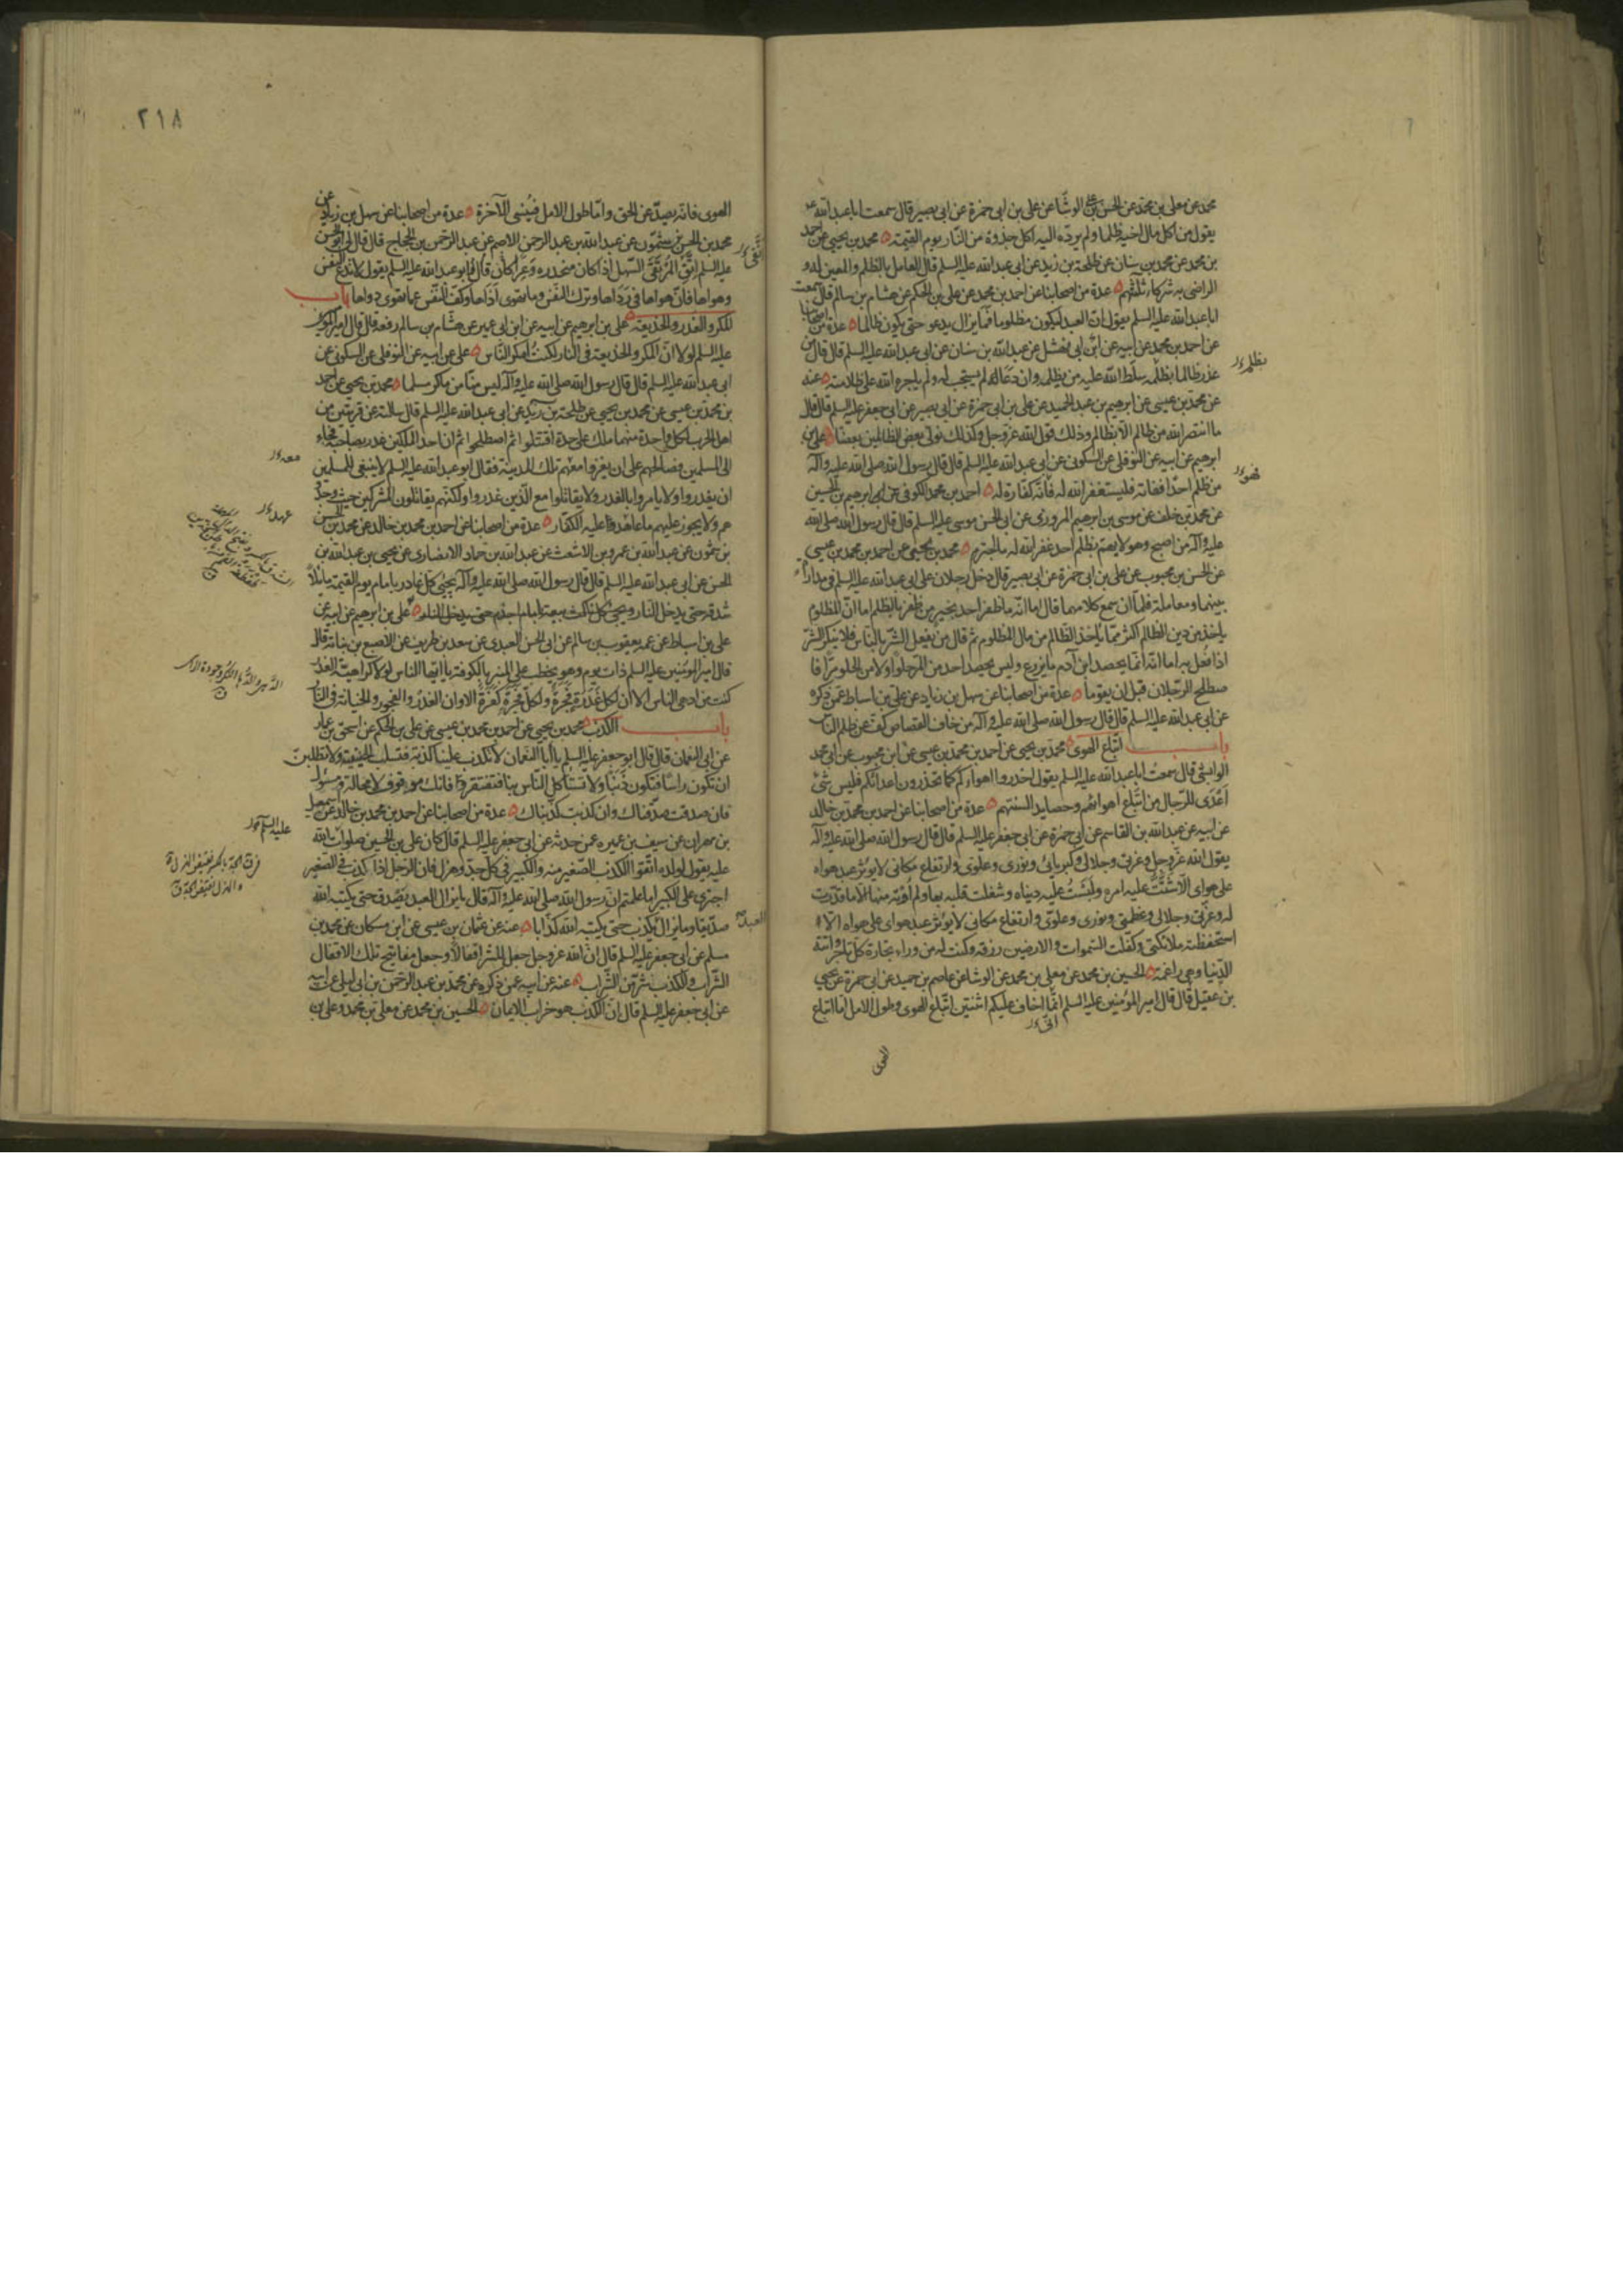 محمد عن معلى بن محمد عن الحسن بن علي الوشّا عن علي بن ابي حمزة عن ابي بصير قال سمعت ابا عبد الله عـ
يقول من اكل مال اخيه ظلما ولم يردّه اليه اكل جذوة من النّار يوم القيمة محمد بن يحيى عن احمد
بن محمد عن محمد بن سنان عن طلحة بن زيد عن ابي عبد الله عليه السلم قال العامل بالظلم والمعين له و
الراضي به شركاء ثلثتهم عدة من اصحابنا عن احمد بن محمد عن علي بن الحكم عن هشام بن سالم قال سمعت
ابا عبد الله عليه السلم يقول انّ العبد ليكون مظلوما فما يزال يدعو حتى يكون ظالما عدة من اصحابنا
عن احمد بن محمد عن ابيه عن ابن ابي نهشل عن عبد الله بن سنان عن ابي عبد الله عليه السلم قال قال من
عذر ظالما بظلمه سلّط الله عليه من يظلمه وان دعا له لم يستجب له ولم ياجره الله على ظلامته عنه
بظلمه
عن محمد بن عيسى عن ابرهيم بن عبد الحميد عن علي بن ابي حمزة عن ابي بصير عن ابي جعفر عليه السلم قال قال
ما انتصر الله من ظالم الّا بظالم وذلك قول الله عز وجل وكذلك نولّي بعض الظالمين بعضا علي بن
ابرهيم عن ابيه عن النوفلي عن السكوني عن ابي عبد الله عليه السلم قال قال رسول الله صلى الله عليه وآله
من ظلم احدًا ففاته فليستغفر الله له فانّه كفارة له احمد بن محمد الكوفي عن ابرهيم بن الحسين
عن محمد بن خلف عن موسى بن ابرهيم المروزي عن ابي الحسن موسى عليه السلم قال قال رسول الله صلى الله
عليه وآله من اصبح وهو لا يهم بظلم احد غفر الله له ما اجترم محمد بن يحيى عن احمد بن محمد بن عيسى
عن الحسن بن محبوب عن علي بن ابي حمزة عن ابي بصير قال دخل رجلان على ابي عبد الله عليه السلم في مداراة
بينهما ومعاملة فلمّا ان سمع كلامهما قال اما انّه ما ظفر احد بخير من ظفر بالظلم اما انّ المظلوم
ياخذ من دين الظالم اكثر ممّا ياخذ الظالم من مال المظلوم ثم قال من يفعل الشرّ بالناس فلا ينكر الشرّ
اذا فعل به اما انّه انّما يحصد ابن آدم ما يزرع وليس يحصد احد من المرّ حلوًا ولا من الحلو مرّا فا
صطلح الرجلان قبل ان يقوما عدة من اصحابنا عن سهل بن زياد عن علي بن اسباط عمن ذكره
عن ابي عبد الله عليه السلم قال قال رسول الله صلى الله عليه وآله من خاف القصاص كفّ عن ظلم الناس
باب اتّباع الهوى محمد بن يحيى عن احمد بن محمد بن عيسى عن ابن محبوب عن ابي محمد
الوابشي قال سمعت ابا عبد الله عليه السلم يقول احذروا اهواءكم كما تحذرون اعداءكم فليس شيء
اعدى للرجال من اتّباع اهوائهم وحصايد السنتهم عدة من اصحابنا عن احمد بن محمد بن خالد
عن ابيه عن عبد الله بن القاسم عن ابي حمزة عن ابي جعفر عليه السلم قال قال رسول الله صلى الله عليه وآله
يقول الله عز وجل وعزتي وجلالي وكبريائي ونوري وعلوّي وارتفاع مكاني لا يؤثر عبد هواه
على هواي الّا شتّتّ عليه امره ولبّست عليه دنياه وشغلت قلبه بها ولم اوته منها الّا ما قدّرت
له وعزّتي وجلالي وعظمتي ونوري وعلوّي وارتفاع مكاني لا يؤثر عبد هواي على هواه الّا
استحفظته ملائكتي وكفّلت السموات والارضين رزقه وكنت له من وراء تجارة كلّ تاجر واتته
الدّنيا وهي راغمة الحسين بن محمد عن معلى بن محمد عن الوشا عن عاصم بن حميد عن ابي حمزة عن يحيى
بن عقيل قال قال امير المؤمنين عليه السلم انّما اخاف عليكم اثنتين اتّباع الهوى وطول الامل امّا اتباع
الهوى
٢١٨
الهوى فانّه يصدّ عن الحق وامّا طول الامل فينسي الآخرة عدة من اصحابنا عن سهل بن زياد عن
محمد بن الحسن بن شمّون عن عبد الله بن عبد الرحمن الاصم عن عبد الرحمن بن الحجاج قال قال لي ابو الحسن
عليه السلم اتّق المرتقى السّهل اذا كان منحدره وعرًا قال وكان ابو عبد الله عليه السلم يقول لا تدع النفس
وهواها فانّ هواها في رداها وترك النفس وما تهوى اذاها وكفّ النفس عما تهوى دواها باب
المكر والغدر والخديعة علي بن ابرهيم عن ابيه عن ابن ابي عمير عن هشام بن سالم رفعه قال قال امير المؤمنين
عليه السلم لولا انّ المكر والخديعة في النار لكنت امكر النّاس علي عن ابيه عن النوفلي عن السكوني عن
ابي عبد الله عليه السلم قال قال رسول الله صلى الله عليه وآله ليس منّا من ماكر مسلما محمد بن يحيى عن احمد
بن محمد بن عيسى عن محمد بن يحيى عن طلحة بن زيد عن ابي عبد الله عليه السلم قال سالته عن قريتين من
اهل الحرب لكل واحدة منهما ملك على حدة اقتتلوا ثم اصطلحوا ثم ان احد الملكين غدر بصاحبه فجاء
الى المسلمين فصالحهم على ان يغزوا معهم تلك المدينة فقال ابو عبد الله عليه السلم لا ينبغي للمسلمين
معه
ان يغدروا ولا يامروا بالغدر ولا يقاتلوا مع الّذين غدروا ولكنّهم يقاتلون المشركين حيث وجدو
هم ولا يجوز عليهم ما عاهد عليه الكفّار عدة من اصحابنا عن احمد بن محمد بن خالد عن محمد بن الحسن
بن شمّون عن عبد الله بن عمرو بن الاشعث عن عبد الله بن حماد الانصاري عن يحيى بن عبد الله بن
الحسن عن ابي عبد الله عليه السلم قال قال رسول الله صلى الله عليه وآله يجيء كلّ غادر بامام يوم القيمة مائلًا
شدقه حتى يدخل النار ويجيء كل ناكث بيعة امام اجذم حتى يدخل النار علي بن ابرهيم عن ابيه عن
علي بن اسباط عن عمه يعقوب بن سالم عن ابي الحسن العبدي عن سعد بن طريف عن الاصبغ بن نباتة قال
قال امير المؤمنين عليه السلم ذات يوم وهو يخطب على المنبر بالكوفة يا ايّها الناس لولا كراهيّة الغدر
كنت من ادهى الناس الا ان لكل غدرة فجرة ولكل فجرة كفرة الا وان الغدر والفجور والخيانة في النّار
باب الكذب محمد بن يحيى عن احمد بن محمد بن عيسى عن علي بن الحكم عن اسحق بن عمار
عن ابي النعمان قال قال ابو جعفر عليه السلم يا ابا النعمان لا تكذب علينا كذبة فتسلب الحنيفية ولا تطلبنّ
ان تكون راسًا فتكون ذنبًا ولا تستاكل الناس بنا فتفتقر فانك موقوف لا محالة ومسؤل
فان صدقت صدّقناك وان كذبت كذّبناك عدة من اصحابنا عن احمد بن محمد بن خالد عن اسمعيل
بن مهران عن سيف بن عميره عمن حدثه عن ابي جعفر عليه السلم قال كان علي بن الحسين صلوات الله
عليه يقول لولده اتّقوا الكذب الصّغير منه والكبير في كل جدّ وهزل فان الرجل اذا كذب في الصغير
اجترى على الكبير اما علمتم انّ رسول الله صلى الله عليه وآله قال ما يزال العبد يصدق حتى يكتبه الله
صدّيقا وما يزال يكذب حتى يكتبه الله كذّابا عنه عن عثمان بن عيسى عن ابن مسكان عن محمد بن
العبد
مسلم عن ابي جعفر عليه السلم قال انّ الله عز وجل جعل للشرّ اقفالًا وجعل مفاتيح تلك الاقفال
الشراب والكذب شرّ من الشّراب عنه عن ابيه عمن ذكره عن محمد بن عبد الرحمن بن ابي ليلى عن ابيه
عن ابي جعفر عليه السلم قال انّ الكذب هو خراب الايمان الحسين بن محمد عن معلى بن محمد وعلي بن